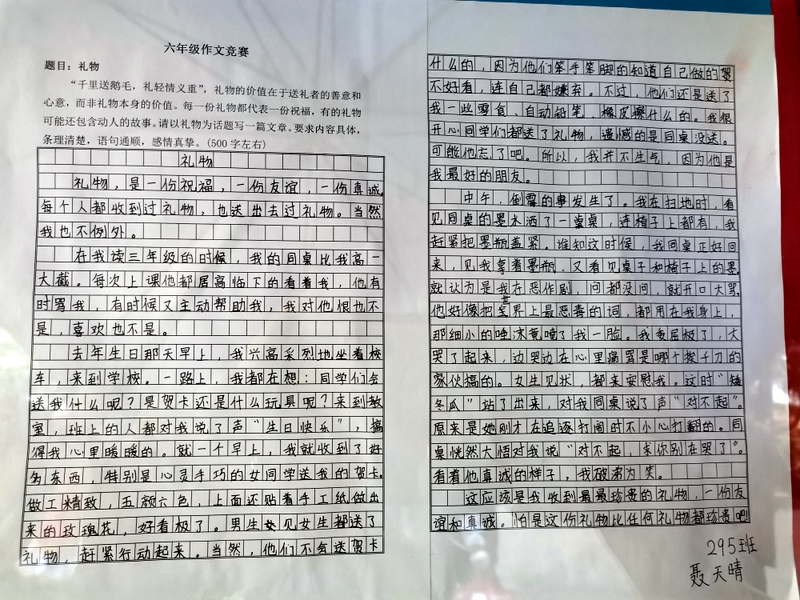 六年级作文竞赛
题目：礼物
“千里送鹅毛，礼轻情义重”，礼物的价值在于送礼者的善意和
心意，而非礼物本身的价值。每一份礼物都代表一份祝福，有的礼物
可能还包含动人的故事。请以礼物为话题写一篇文章。要求内容具体，
条理清楚，语句通顺，感情真挚。(500字左右)
礼物
礼物，是一份祝福，一份友谊，一份真诚。
每个人都收到过礼物，也送出去过礼物。当然
我也不例外。
在我读三年级的时候，我的同桌比我高一
大截。每次上课他都居高临下的看着我，他有
时骂我，有时候又主动帮助我，我对他恨也不
是，喜欢也不是。
去年生日那天早上，我兴高采烈地坐着校
车，来到学校。一路上，我都在想：同学们会
送我什么呢？是贺卡还是什么玩具呢？来到教
室，班上的人都对我说了声“生日快乐”，搞
得我心里暖暖的。就一个早上，我就收到了好
多东西，特别是心灵手巧的女同学送我的贺卡。
做工精致，五颜六色，上面还贴着手工纸做出
来的玫瑰花，好看极了。男生见女生都送了
礼物，赶紧行动起来。当然，他们不会送贺卡
什么的，因为他们笨手笨脚的知道自己做的
不好看，连自己都嫌弃。不过，他们还是送了
我一些零食、自动铅笔、橡皮擦什么的。我很
开心同学们都送了礼物，遗憾的是同桌没送。
可能他忘了吧。所以，我并不生气，因为他是
我最好的朋友。
中午，倒霉的事发生了。我在扫地时，看
见同桌的墨水洒了一桌，连椅子上都有，我
赶紧把墨瓶盖紧，谁知这时候，我同桌正好回
来，见我拿着墨瓶，又看见桌子和椅子上的墨，
就认为是我在恶作剧，问都没问，就开口大骂，
他好像把世界上最恶毒的词，都用在我身上，
那细小的唾沫竟喷了我一脸。我委屈极了，大
哭了起来，边哭边在心里痛骂是哪个挨千刀的
家伙搞的。女生见状，都来安慰我。这时“矮
冬瓜”站了出来，对我同桌说了声“对不起”。
原来是她刚才在追逐打闹时不小心打翻的。同
桌恍然大悟对我说“对不起，求你别在哭了”。
看着他真诚的样子，我破涕为笑。
这应该是我收到最最珍贵的礼物，一份友
谊和真诚。怕是这份礼物比任何礼物都珍贵吧
295班
聂天晴